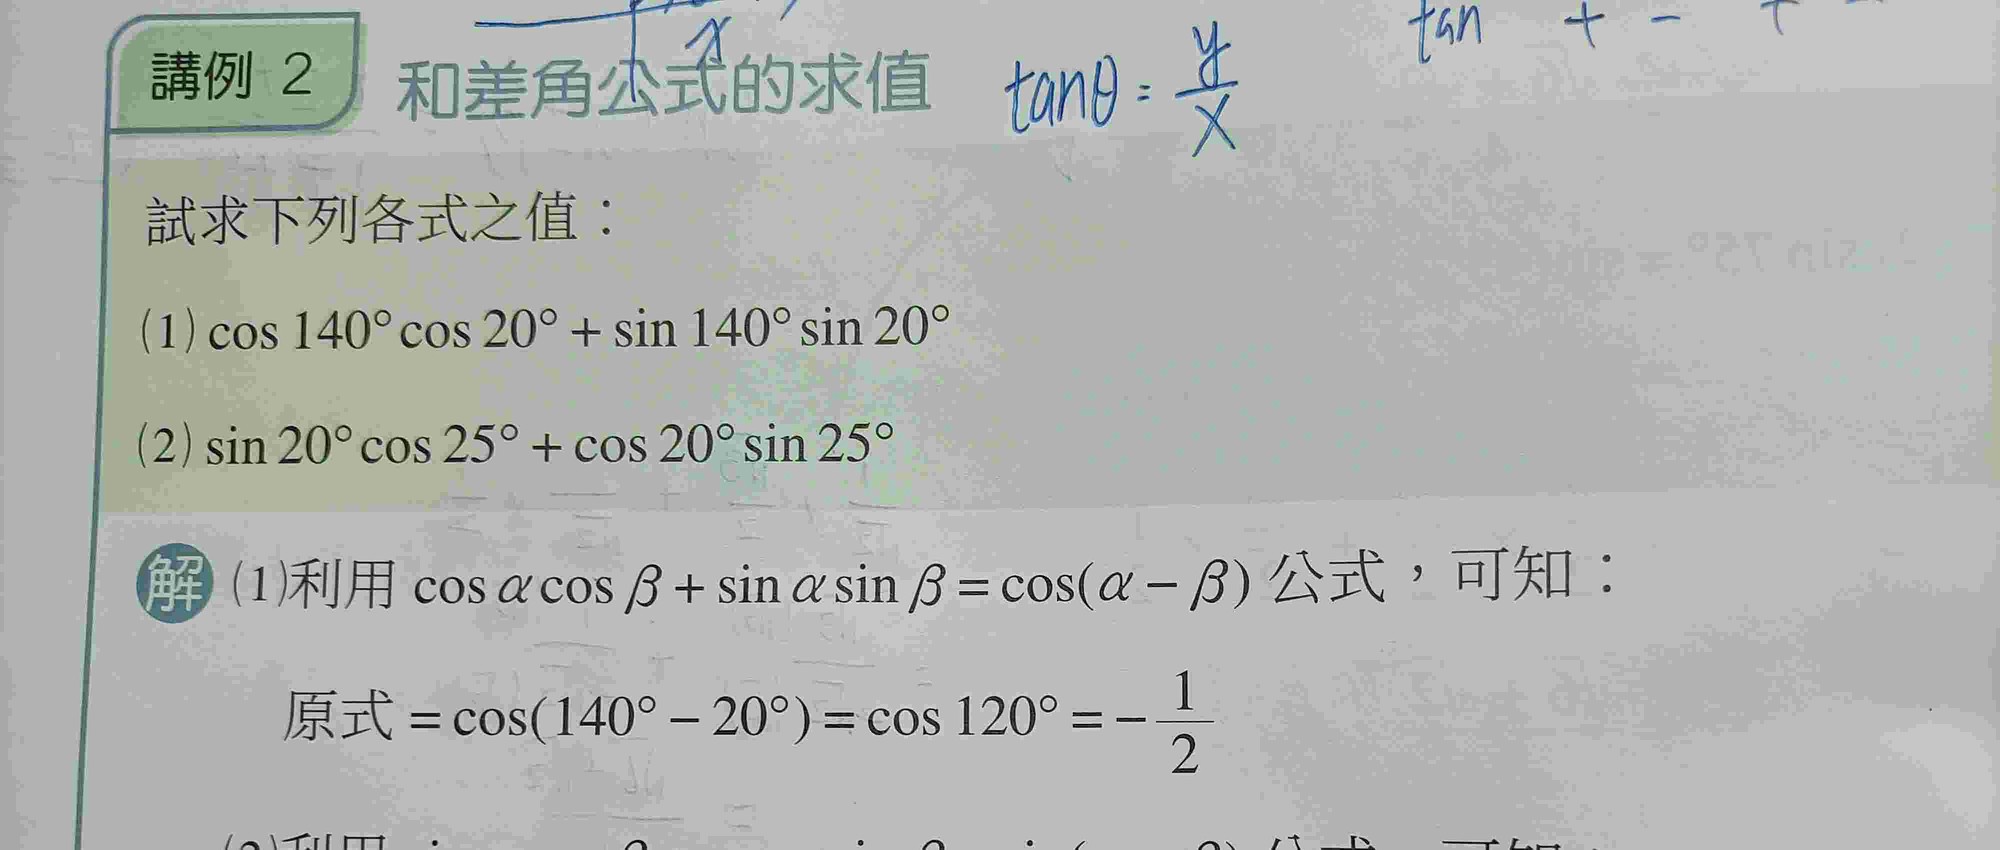 x
tan + - +
講例 2 和差角公式的求值 tanθ = y/x
試求下列各式之值：
(1) cos 140° cos 20° + sin 140° sin 20°
(2) sin 20° cos 25° + cos 20° sin 25°
解 (1)利用 cos α cos β + sin α sin β = cos(α − β) 公式，可知：
原式 = cos(140° − 20°) = cos 120° = −1/2